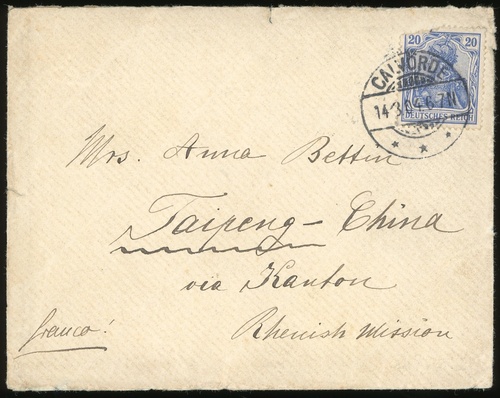 20 20
DEUTSCHES REICH
CALVÖRDE
14.3.04.6-7N
Mrs. Anna Bettin
Taipeng - China
via Kanton
Rhenish Mission
franco!